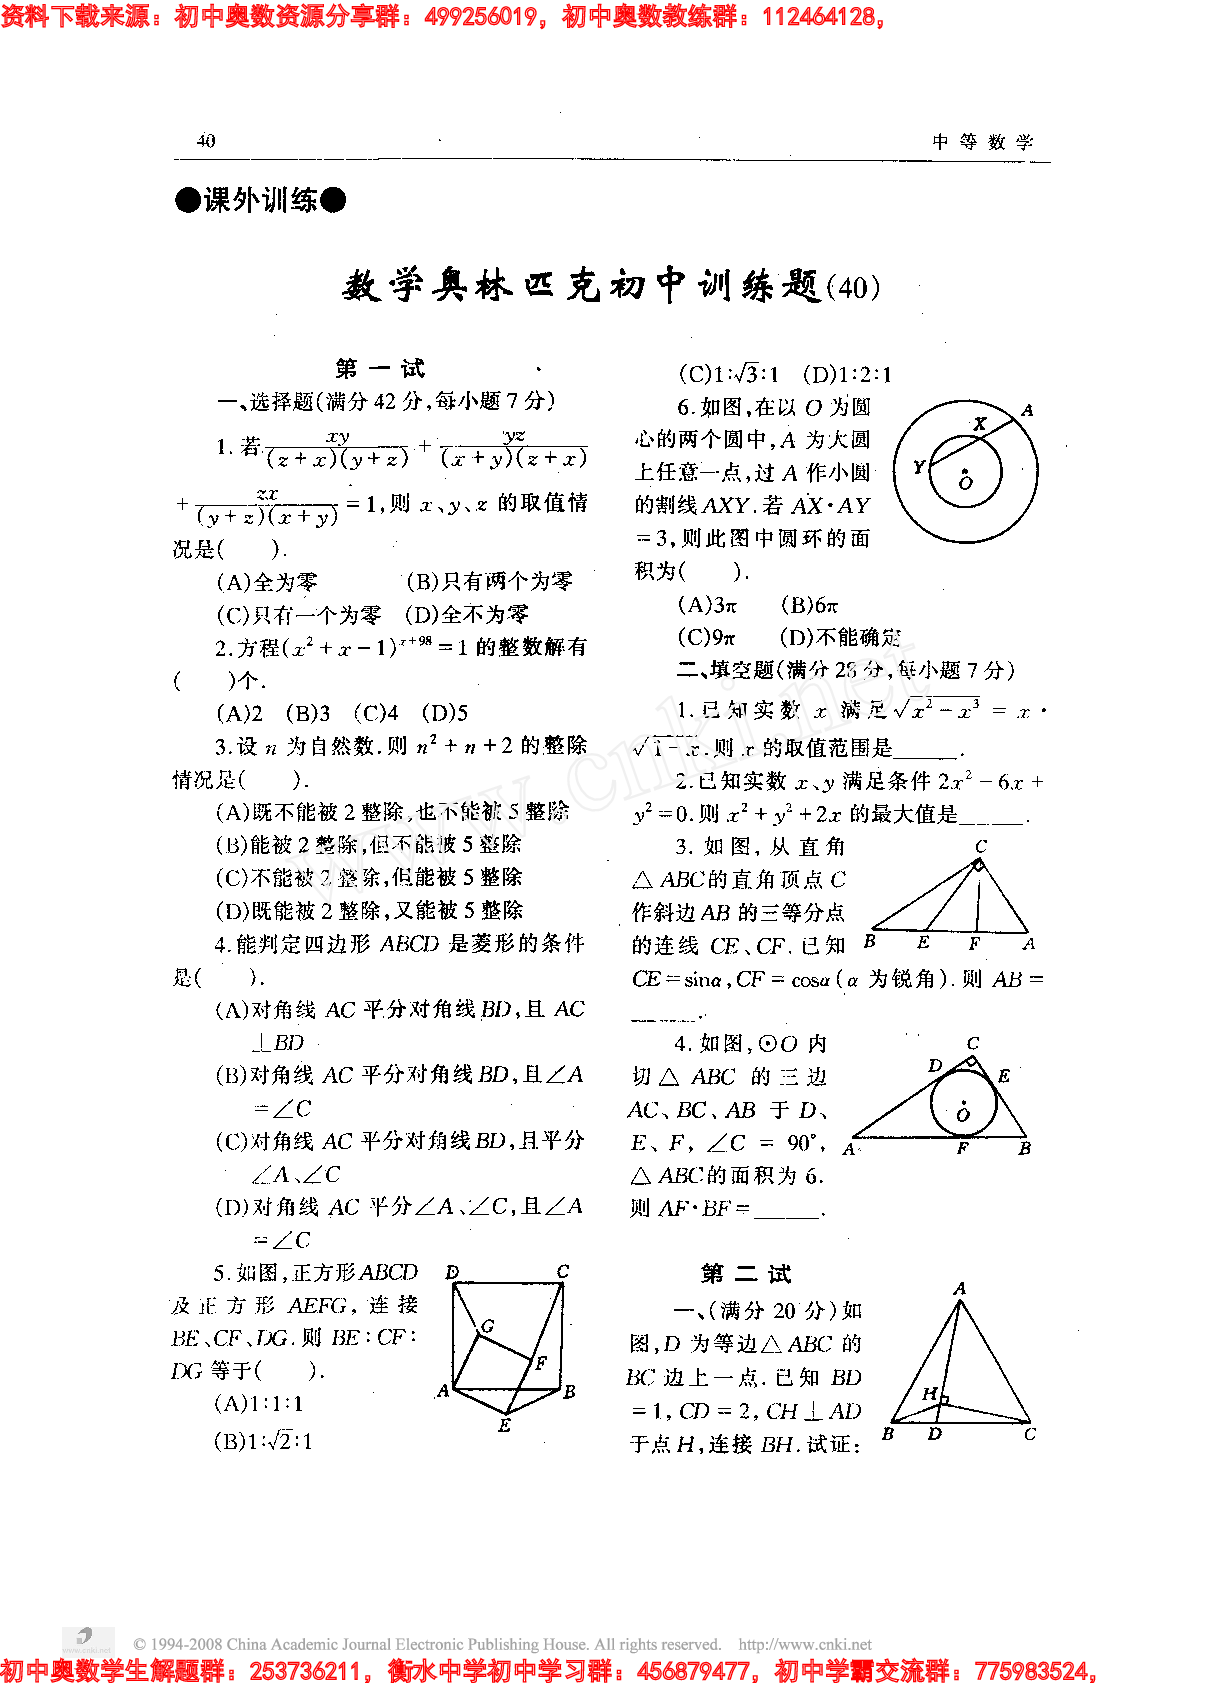 资料下载来源：初中奥数资源分享群：499256019，初中奥数教练群：112464128，
40
中 等 数 学
●课外训练●
数学奥林匹克初中训练题(40)
第 一 试
一、选择题(满分 42 分,每小题 7 分)
1. 若 xy/((z+x)(y+z)) + yz/((x+y)(z+x))
+ zx/((y+z)(x+y)) = 1,则 x、y、z 的取值情
况是( ).
(A)全为零 (B)只有两个为零
(C)只有一个为零 (D)全不为零
2.方程(x²+x-1)^(x+98)=1 的整数解有
( )个.
(A)2 (B)3 (C)4 (D)5
3.设 n 为自然数.则 n²+n+2 的整除
情况是( ).
(A)既不能被 2 整除,也不能被 5 整除
(B)能被 2 整除,但不能被 5 整除
(C)不能被 2 整除,但能被 5 整除
(D)既能被 2 整除,又能被 5 整除
4.能判定四边形 ABCD 是菱形的条件
是( ).
(A)对角线 AC 平分对角线 BD,且 AC
⊥BD
(B)对角线 AC 平分对角线 BD,且∠A
=∠C
(C)对角线 AC 平分对角线 BD,且平分
∠A、∠C
(D)对角线 AC 平分∠A、∠C,且∠A
=∠C
5.如图,正方形 ABCD
及正方形 AEFG, 连接
BE、CF、DG. 则 BE:CF:
DG 等于( ).
(A)1:1:1
(B)1:√2:1
D C G F A B E
(C)1:√3:1 (D)1:2:1
6.如图,在以 O 为圆
心的两个圆中,A 为大圆
上任意一点,过 A 作小圆
的割线 AXY. 若 AX·AY
=3,则此图中圆环的面
积为( ).
X A Y O
(A)3π (B)6π
(C)9π (D)不能确定
二、填空题(满分 28 分,每小题 7 分)
1. 已知实数 x 满足√(x²-x³) = x·
√(1-x).则 x 的取值范围是_____.
2.已知实数 x、y 满足条件 2x²-6x+
y²=0.则 x²+y²+2x 的最大值是_____.
3. 如图, 从直角
△ABC的直角顶点 C
作斜边 AB 的三等分点
的连线 CE、CF. 已知
C B E F A
CE=sinα,CF=cosα(α 为锐角). 则 AB=
_____.
4. 如图,⊙O 内
切△ABC 的三边
AC、BC、AB 于 D、
E、F, ∠C = 90°,
△ABC的面积为 6.
则 AF·BF=_____.
C D E O A F B
第 二 试
一、(满分 20 分)如
图,D 为等边△ABC 的
BC 边上一点. 已知 BD
=1, CD=2, CH⊥AD
于点 H,连接 BH. 试证:
A H B D C
www.cnki.net
© 1994-2008 China Academic Journal Electronic Publishing House. All rights reserved. http://www.cnki.net
初中奥数学生解题群：253736211，衡水中学初中学习群：456879477，初中学霸交流群：775983524，